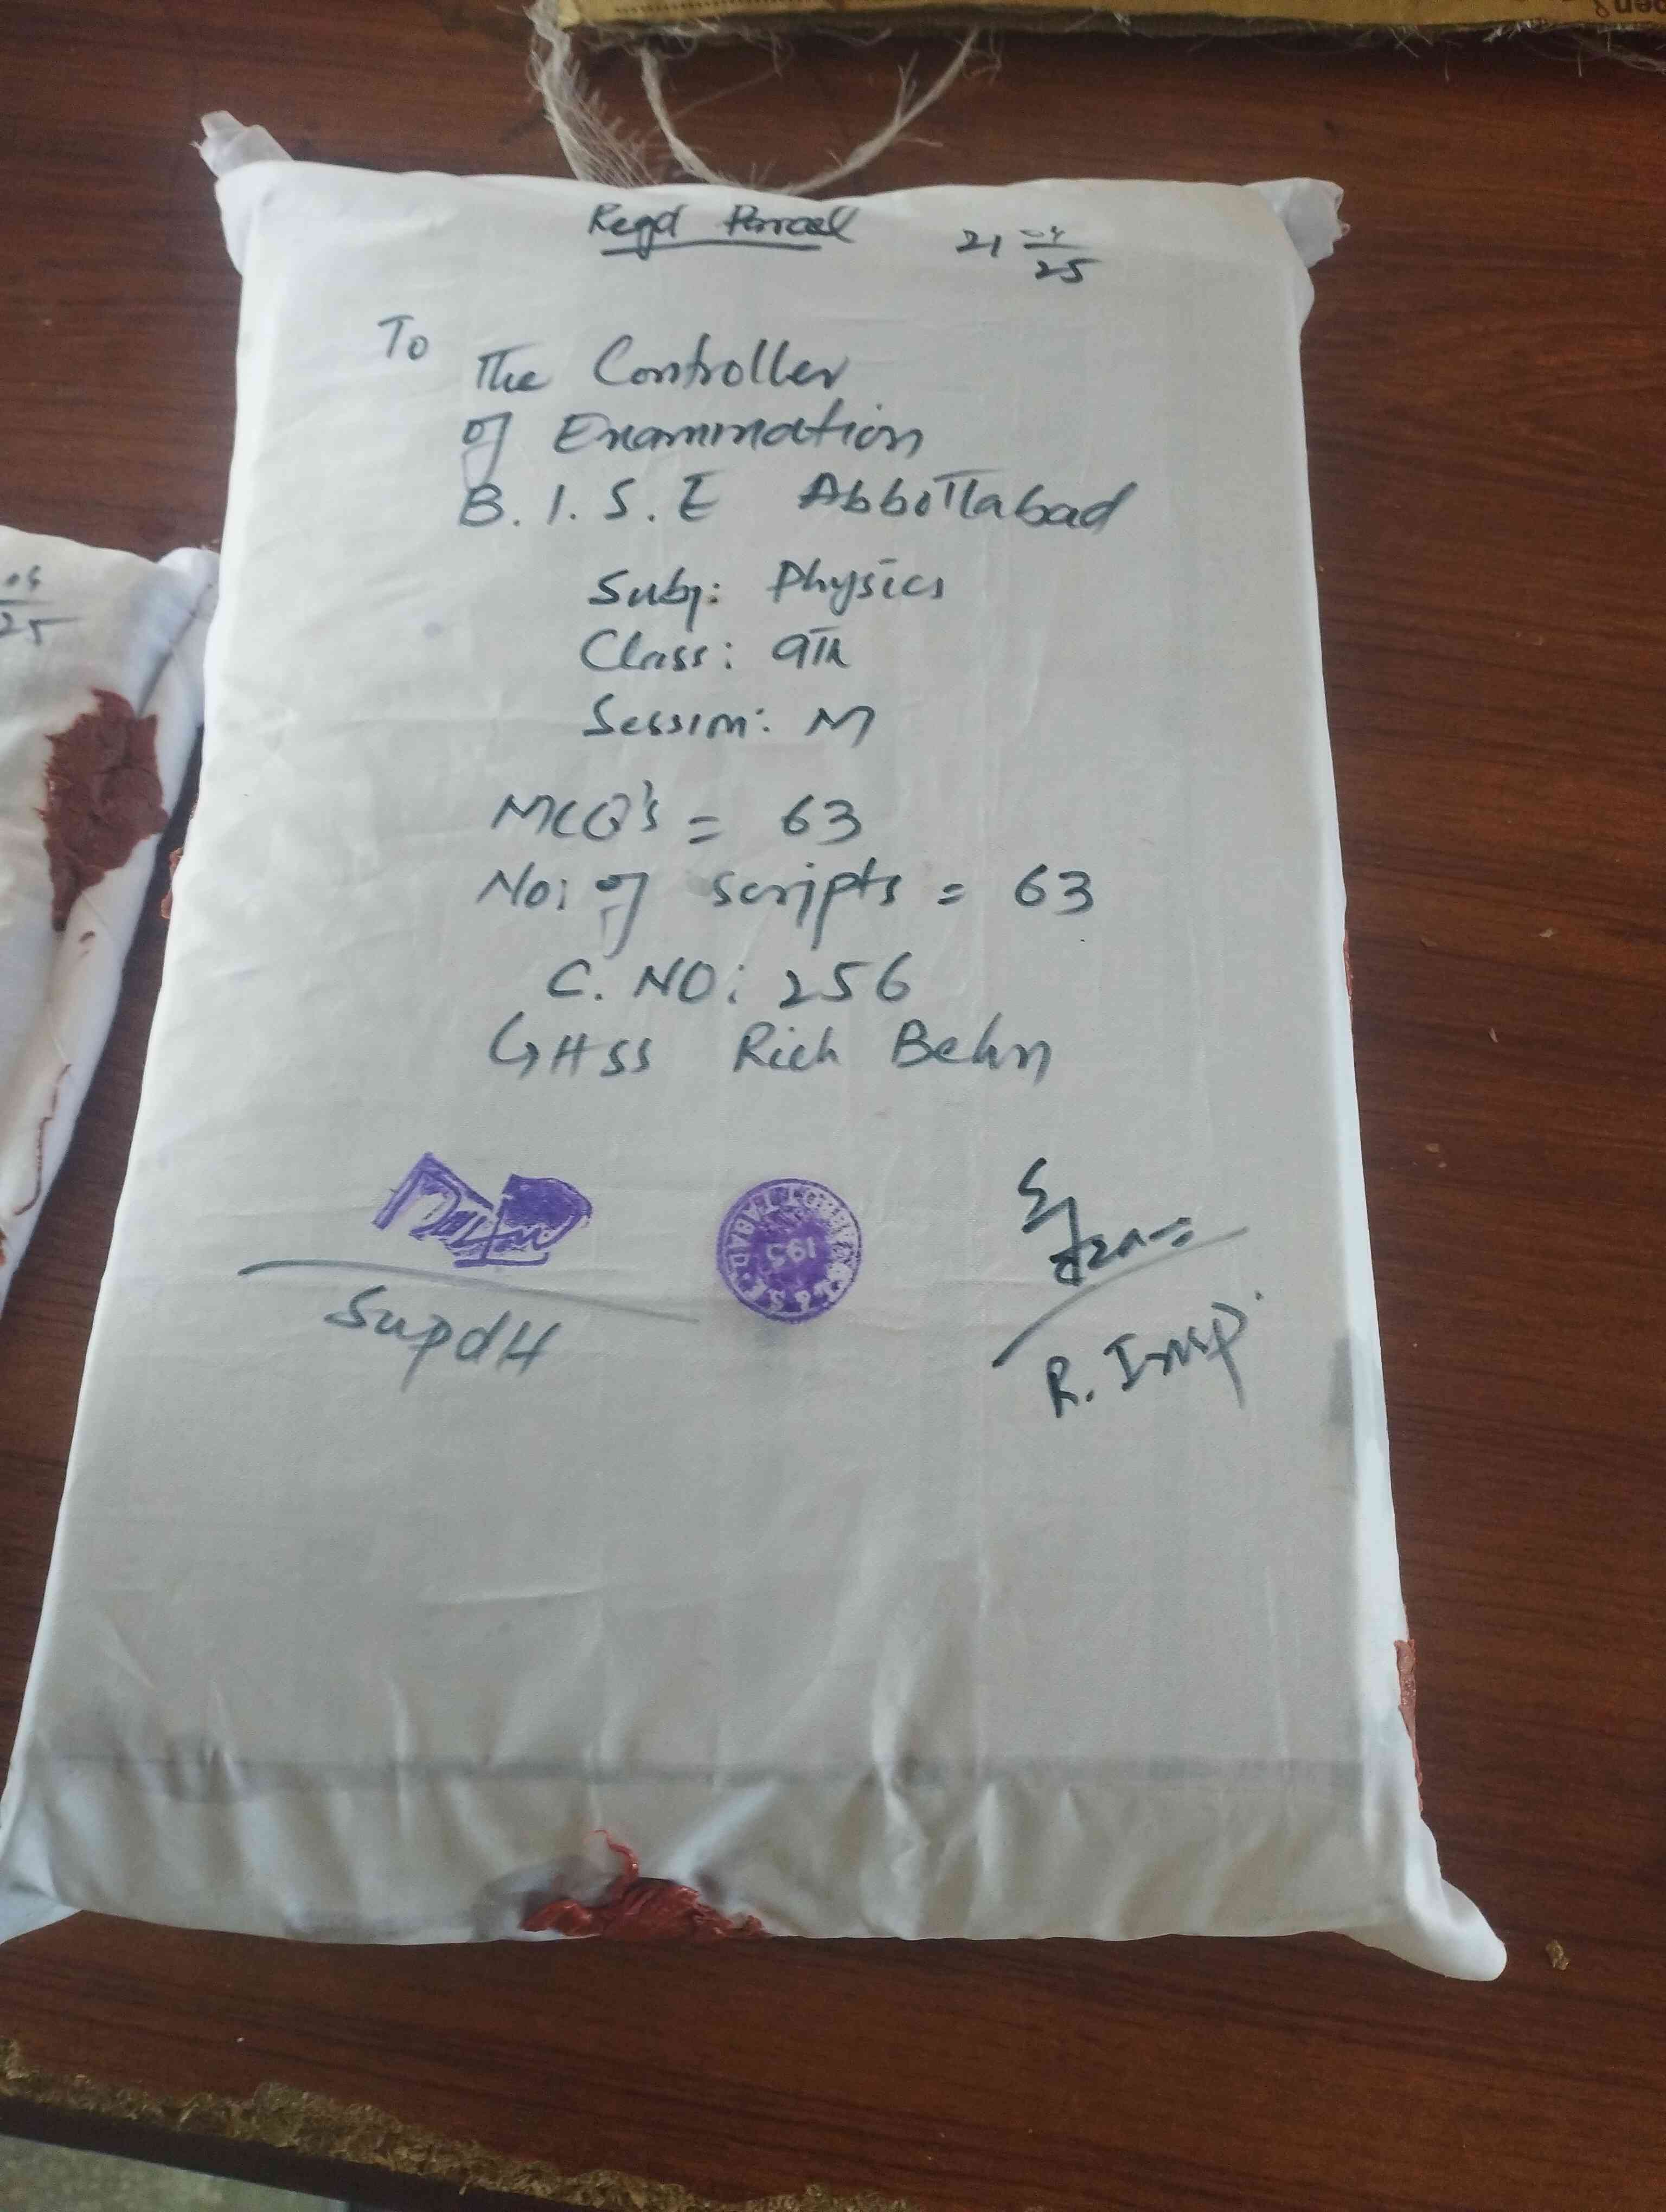 Regd Parcel 21 04/25
To
The Controller
of Examination
B. I. S. E Abbottabad
Subj: Physics
Class: 9Th
Session: M
MCQ's = 63
No: of scripts = 63
C. NO: 256
GHSS Rich Behn
195
Supdtt
R. Insp.
25